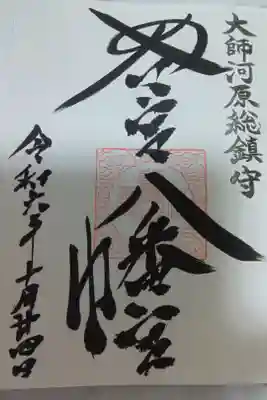 大師河原総鎮守
若宮八幡宮
令和六年十月廿四日